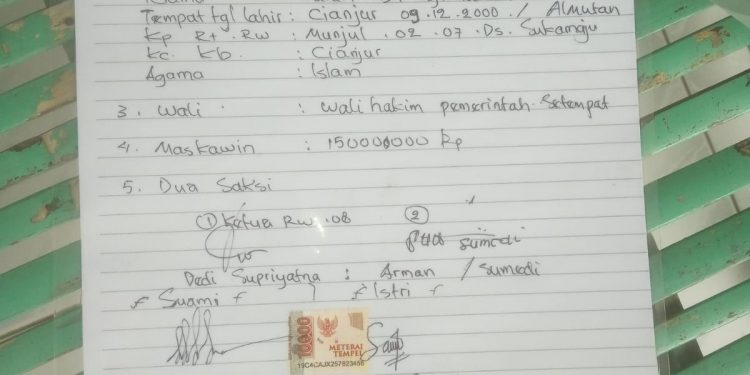 Tempat tgl lahir : Cianjur 09.12.2000 / Almutan
Kp Rt . Rw : Munjul . 02 . 07 . Ds. Sukamaju
Kc. Kb. : Cianjur
Agama : Islam
3. Wali : Wali hakim pemerintah Setempat
4. Maskawin : 150000000 Rp
5. Dua Saksi
① Ketua RW .08 ②
Sumedi
Dedi Supriyatna : Arman / Sumedi
Suami Istri
10000
METERAI
TEMPEL